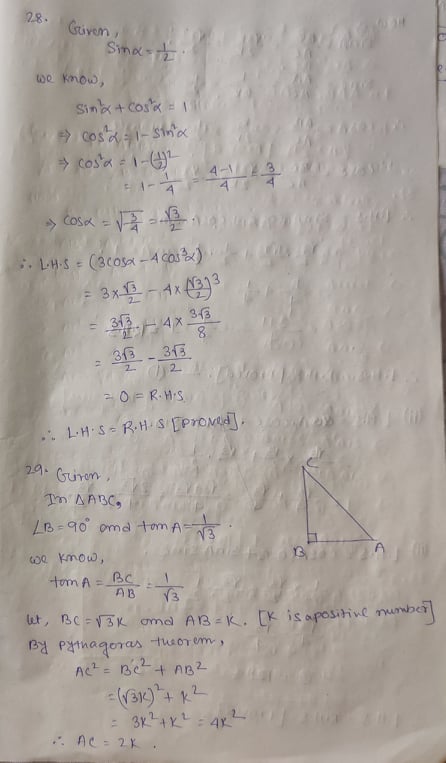 28.
Given,
Sinα = 1/2.
we know,
sin²α + cos²α = 1
⇒ cos²α = 1 - sin²α
⇒ cos²α = 1 - (1/2)²
= 1 - 1/4 = 4-1/4 = 3/4
⇒ cosα = √3/4 = √3/2.
∴ L.H.S = (3cosα - 4cos³α)
= 3×√3/2 - 4×(√3/2)³
= 3√3/2 - 4× 3√3/8
= 3√3/2 - 3√3/2
= 0 = R.H.S
∴ L.H.S = R.H.S [proved].
29. Given,
In △ABC,
∠B = 90° and tan A = 1/√3.
we know,
tan A = BC/AB = 1/√3
let, BC = √3K and AB = K. [K is a positive number]
By pythagoras theorem,
AC² = BC² + AB²
= (√3K)² + K²
= 3K² + K² = 4K²
∴ AC = 2K.
C
B
A